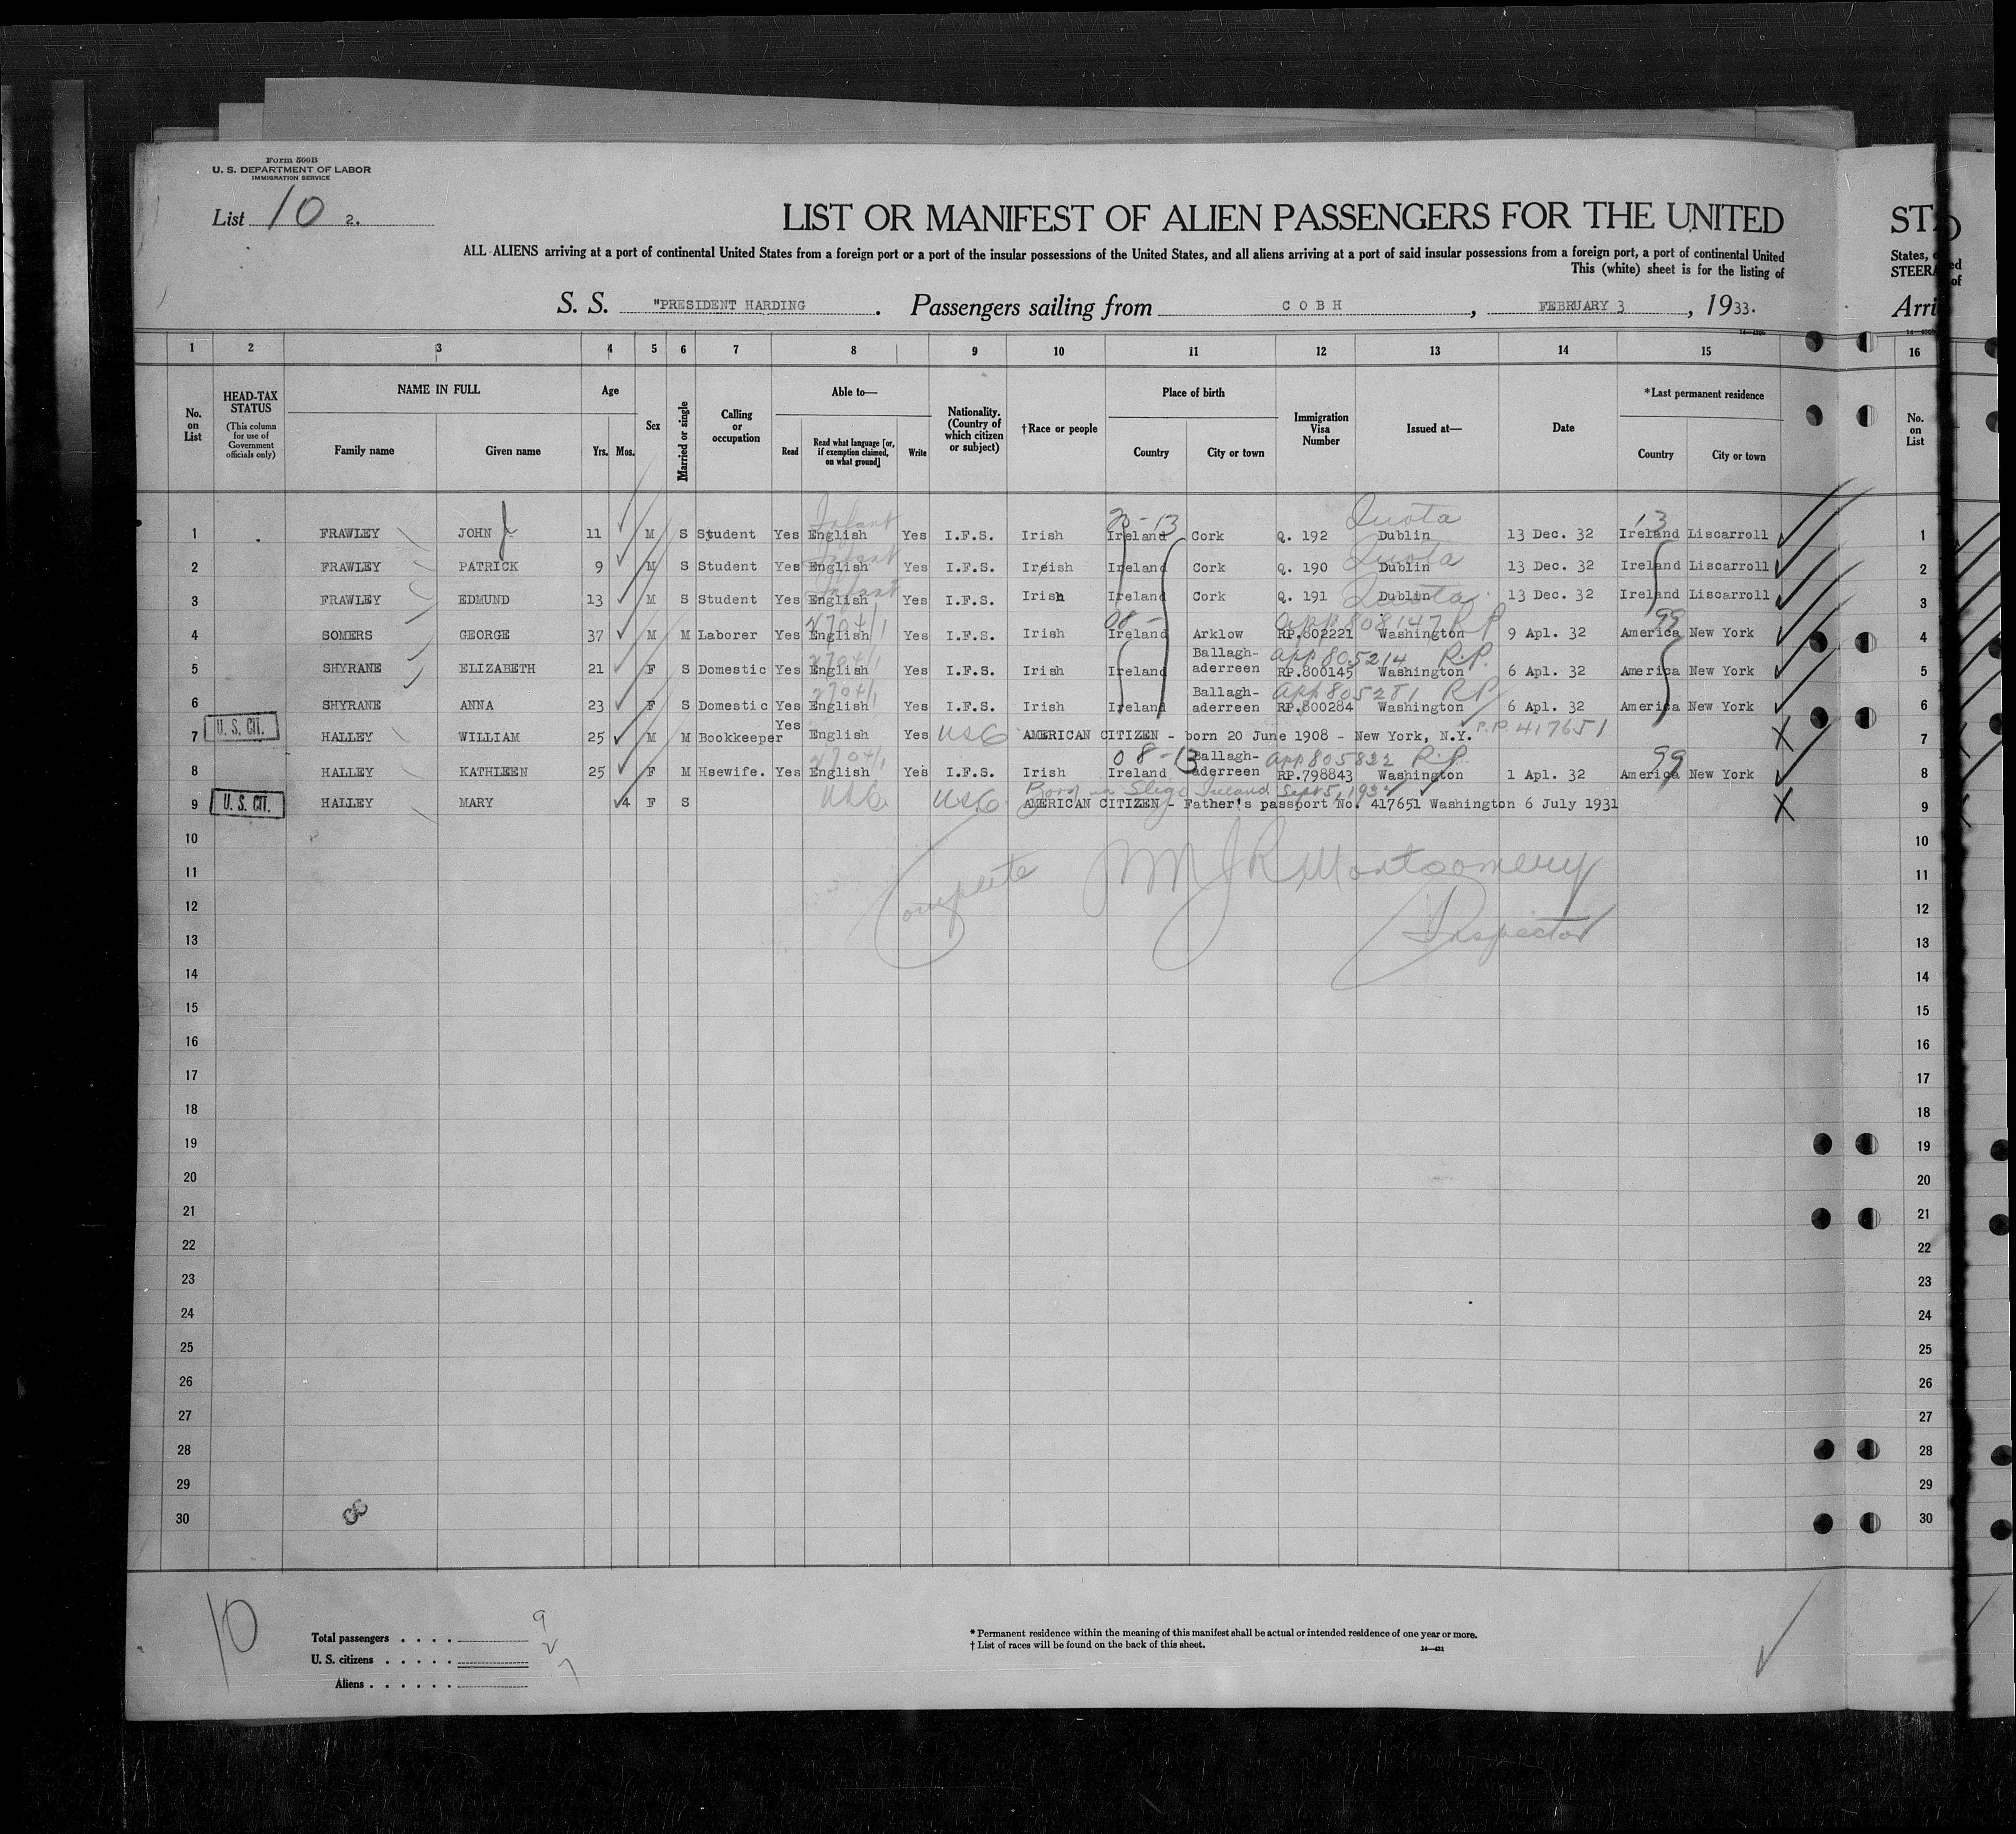 Form 500B
U. S. DEPARTMENT OF LABOR
IMMIGRATION SERVICE
List 10 2.
LIST OR MANIFEST OF ALIEN PASSENGERS FOR THE UNITED
ALL ALIENS arriving at a port of continental United States from a foreign port or a port of the insular possessions of the United States, and all aliens arriving at a port of said insular possessions from a foreign port, a port of continental United
This (white) sheet is for the listing of
S. S. "PRESIDENT HARDING . Passengers sailing from COBH , FEBRUARY 3 , 1933.
States,
STEERA
Arri
1 2 3 4 5 6 7 8 9 10 11 12 13 14 15 16
No. on List
HEAD-TAX STATUS (This column for use of Government officials only)
NAME IN FULL
Family name Given name
Age
Yrs. Mos.
Sex
Married or single
Calling or occupation
Able to—
Read
Read what language [or, if exemption claimed, on what ground]
Write
Nationality. (Country of which citizen or subject)
†Race or people
Place of birth
Country City or town
Immigration Visa Number
Issued at—
Date
*Last permanent residence
Country City or town
No. on List
Infant Quota 13
1 FRAWLEY JOHN J 11 M S Student Yes English Yes I.F.S. Irish Ireland Cork Q. 192 Dublin 13 Dec. 32 Ireland Liscarroll 1
Infant Quota
2 FRAWLEY PATRICK 9 M S Student Yes English Yes I.F.S. Irish Ireland Cork Q. 190 Dublin 13 Dec. 32 Ireland Liscarroll 2
Infant Quota
3 FRAWLEY EDMUND 13 M S Student Yes English Yes I.F.S. Irish Ireland Cork Q. 191 Dublin 13 Dec. 32 Ireland Liscarroll 3
08- App 808147 RP 99
4 SOMERS GEORGE 37 M M Laborer Yes English Yes I.F.S. Irish Ireland Arklow RP.802221 Washington 9 Apl. 32 America New York 4
App 805214 R.P.
5 SHYRANE ELIZABETH 21 F S Domestic Yes English Yes I.F.S. Irish Ireland Ballagh-aderreen RP.800145 Washington 6 Apl. 32 America New York 5
App 805281 RP
6 SHYRANE ANNA 23 F S Domestic Yes English Yes I.F.S. Irish Ireland Ballagh-aderreen RP.800284 Washington 6 Apl. 32 America New York 6
U. S. CIT.
7 HALLEY WILLIAM 25 M M Bookkeeper Yes English Yes USC AMERICAN CITIZEN - born 20 June 1908 - New York, N.Y. P.P. 417651 7
08-13 App 805822 R.P. 99
8 HALLEY KATHLEEN 25 F M Hsewife. Yes English Yes I.F.S. Irish Ireland Ballagh-aderreen RP.798843 Washington 1 Apl. 32 America New York 8
Born in Sligo Ireland Sept 5, 1932
U. S. CIT.
9 HALLEY MARY 4 F S USC USC AMERICAN CITIZEN - Father's passport No. 417651 Washington 6 July 1931 9
10 10
11 11
12 12
13 13
14 14
15 15
16 16
17 17
18 18
19 19
20 20
21 21
22 22
23 23
24 24
25 25
26 26
27 27
28 28
29 29
30 30
Complete
Montgomery
Inspector
10
Total passengers . . . . 9
U. S. citizens . . . . . 2
Aliens . . . . . . 7
* Permanent residence within the meaning of this manifest shall be actual or intended residence of one year or more.
† List of races will be found on the back of this sheet.
14—431